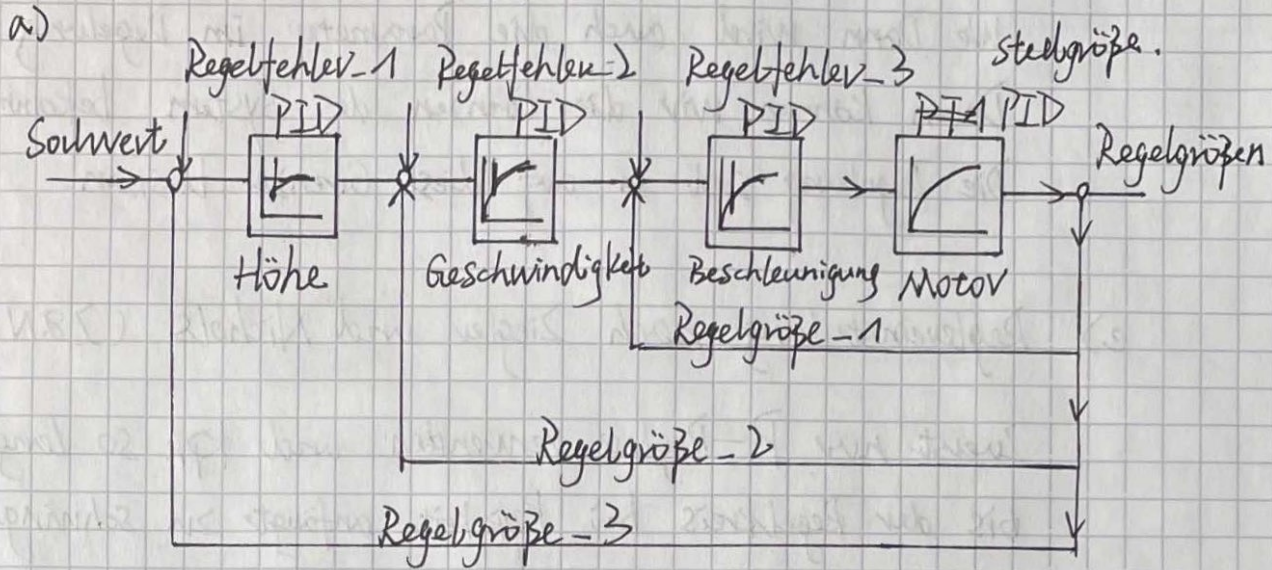 a)
Regelfehler_1 Regelfehler_2 Regelfehler_3 Stellgröße.
PID PID PID PT1 PID
Sollwert
Regelgrößen
Höhe Geschwindigkeit Beschleunigung Motor
Regelgröße_1
Regelgröße_2
Regelgröße_3